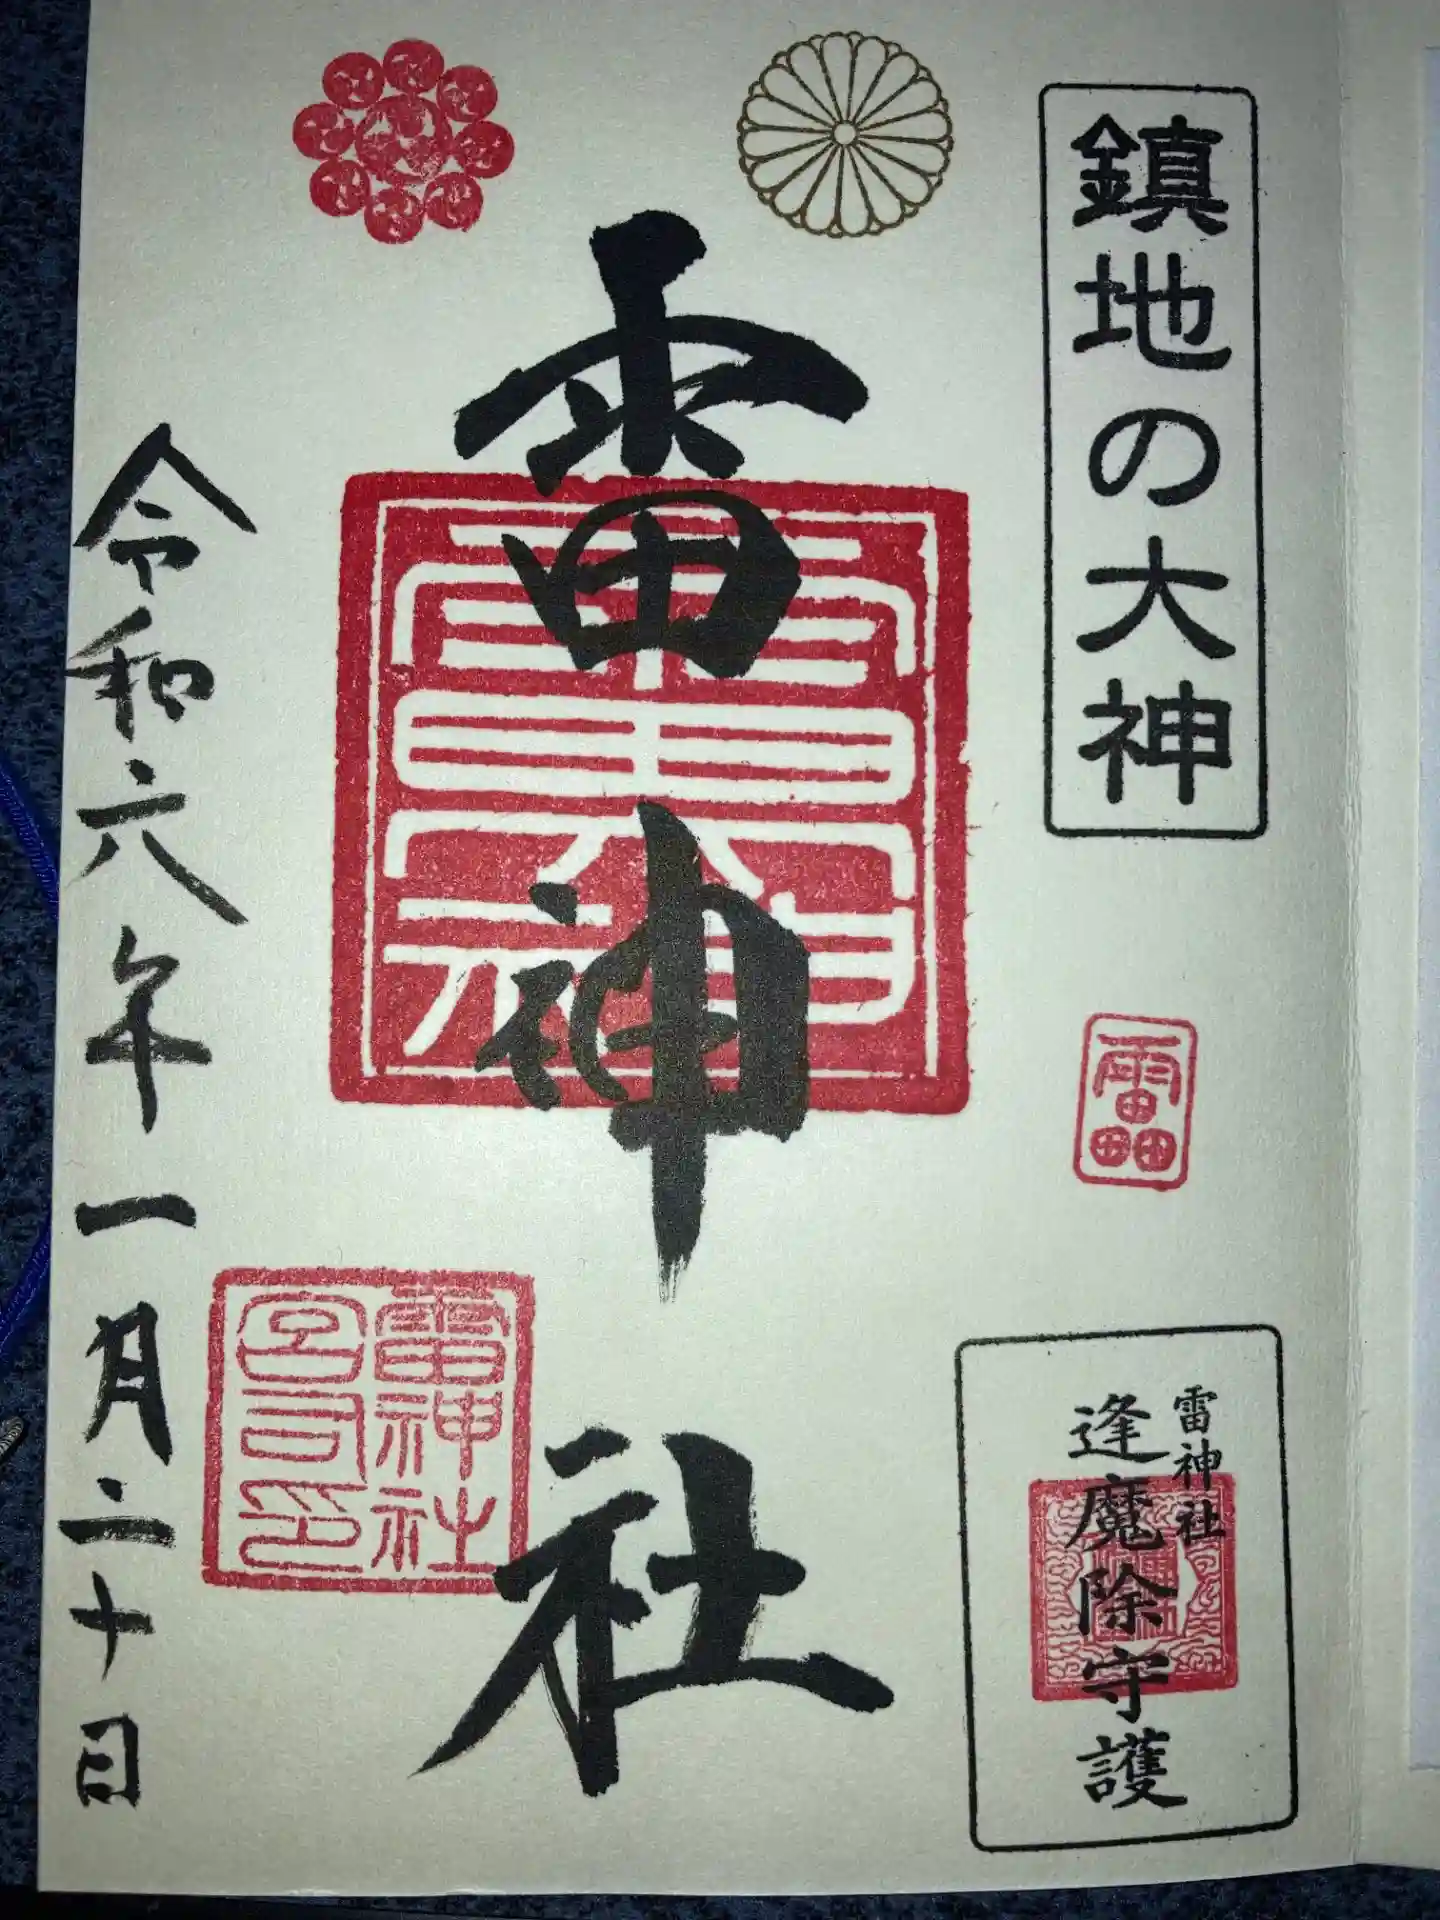 鎮地の大神
雷神社
逢魔除守護
雷神社
雷神社
宮司印
令和六年一月二十日